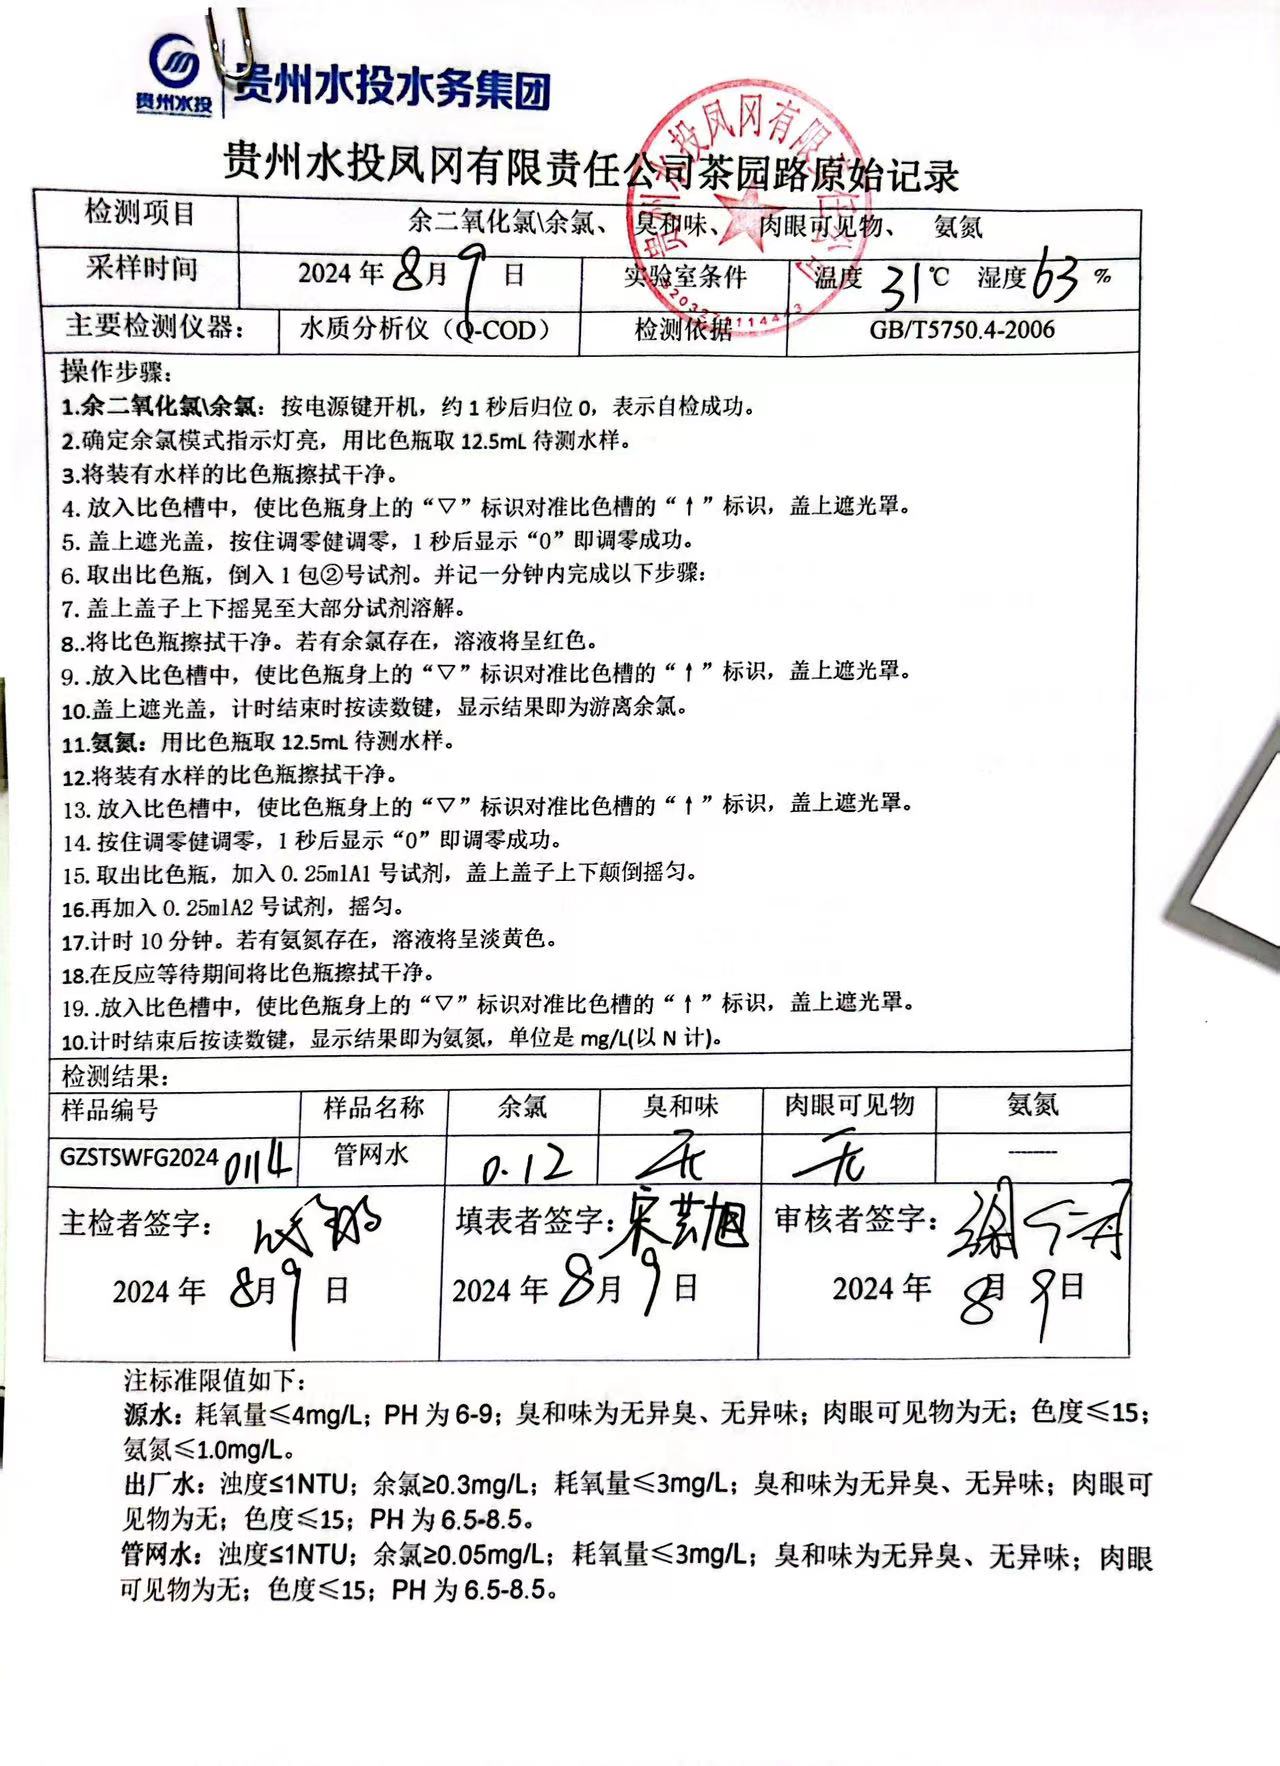 贵州水投
贵州水投水务集团
贵州水投凤冈有限责任公司茶园路原始记录
检测项目 余二氧化氯\余氯、 臭和味、 肉眼可见物、 氨氮
采样时间 2024年8月9日 实验室条件 温度31℃ 湿度63%
主要检测仪器： 水质分析仪（Q-COD） 检测依据 GB/T5750.4-2006
操作步骤：
1.余二氧化氯\余氯：按电源键开机，约1秒后归位0，表示自检成功。
2.确定余氯模式指示灯亮，用比色瓶取12.5mL待测水样。
3.将装有水样的比色瓶擦拭干净。
4. 放入比色槽中，使比色瓶身上的“▽”标识对准比色槽的“↑”标识，盖上遮光罩。
5. 盖上遮光盖，按住调零健调零，1秒后显示“0”即调零成功。
6. 取出比色瓶，倒入1包②号试剂。并记一分钟内完成以下步骤：
7. 盖上盖子上下摇晃至大部分试剂溶解。
8..将比色瓶擦拭干净。若有余氯存在，溶液将呈红色。
9. .放入比色槽中，使比色瓶身上的“▽”标识对准比色槽的“↑”标识，盖上遮光罩。
10.盖上遮光盖，计时结束时按读数键，显示结果即为游离余氯。
11.氨氮：用比色瓶取12.5mL待测水样。
12.将装有水样的比色瓶擦拭干净。
13. 放入比色槽中，使比色瓶身上的“▽”标识对准比色槽的“↑”标识，盖上遮光罩。
14. 按住调零健调零，1秒后显示“0”即调零成功。
15. 取出比色瓶，加入0.25mlA1号试剂，盖上盖子上下颠倒摇匀。
16.再加入0.25mlA2号试剂，摇匀。
17.计时10分钟。若有氨氮存在，溶液将呈淡黄色。
18.在反应等待期间将比色瓶擦拭干净。
19. .放入比色槽中，使比色瓶身上的“▽”标识对准比色槽的“↑”标识，盖上遮光罩。
10.计时结束后按读数键，显示结果即为氨氮，单位是mg/L(以N计)。
检测结果：
样品编号 样品名称 余氯 臭和味 肉眼可见物 氨氮
GZSTSWFG20240114 管网水 0.12 无 无 ------
主检者签字： 填表者签字：宋芸旭 审核者签字：
2024年8月9日 2024年8月9日 2024年8月9日
注标准限值如下：
源水：耗氧量≤4mg/L；PH为6-9；臭和味为无异臭、无异味；肉眼可见物为无；色度≤15；
氨氮≤1.0mg/L。
出厂水：浊度≤1NTU；余氯≥0.3mg/L；耗氧量≤3mg/L；臭和味为无异臭、无异味；肉眼可
见物为无；色度≤15；PH为6.5-8.5。
管网水：浊度≤1NTU；余氯≥0.05mg/L；耗氧量≤3mg/L；臭和味为无异臭、无异味；肉眼
可见物为无；色度≤15；PH为6.5-8.5。
贵州水投凤冈有限责任公司